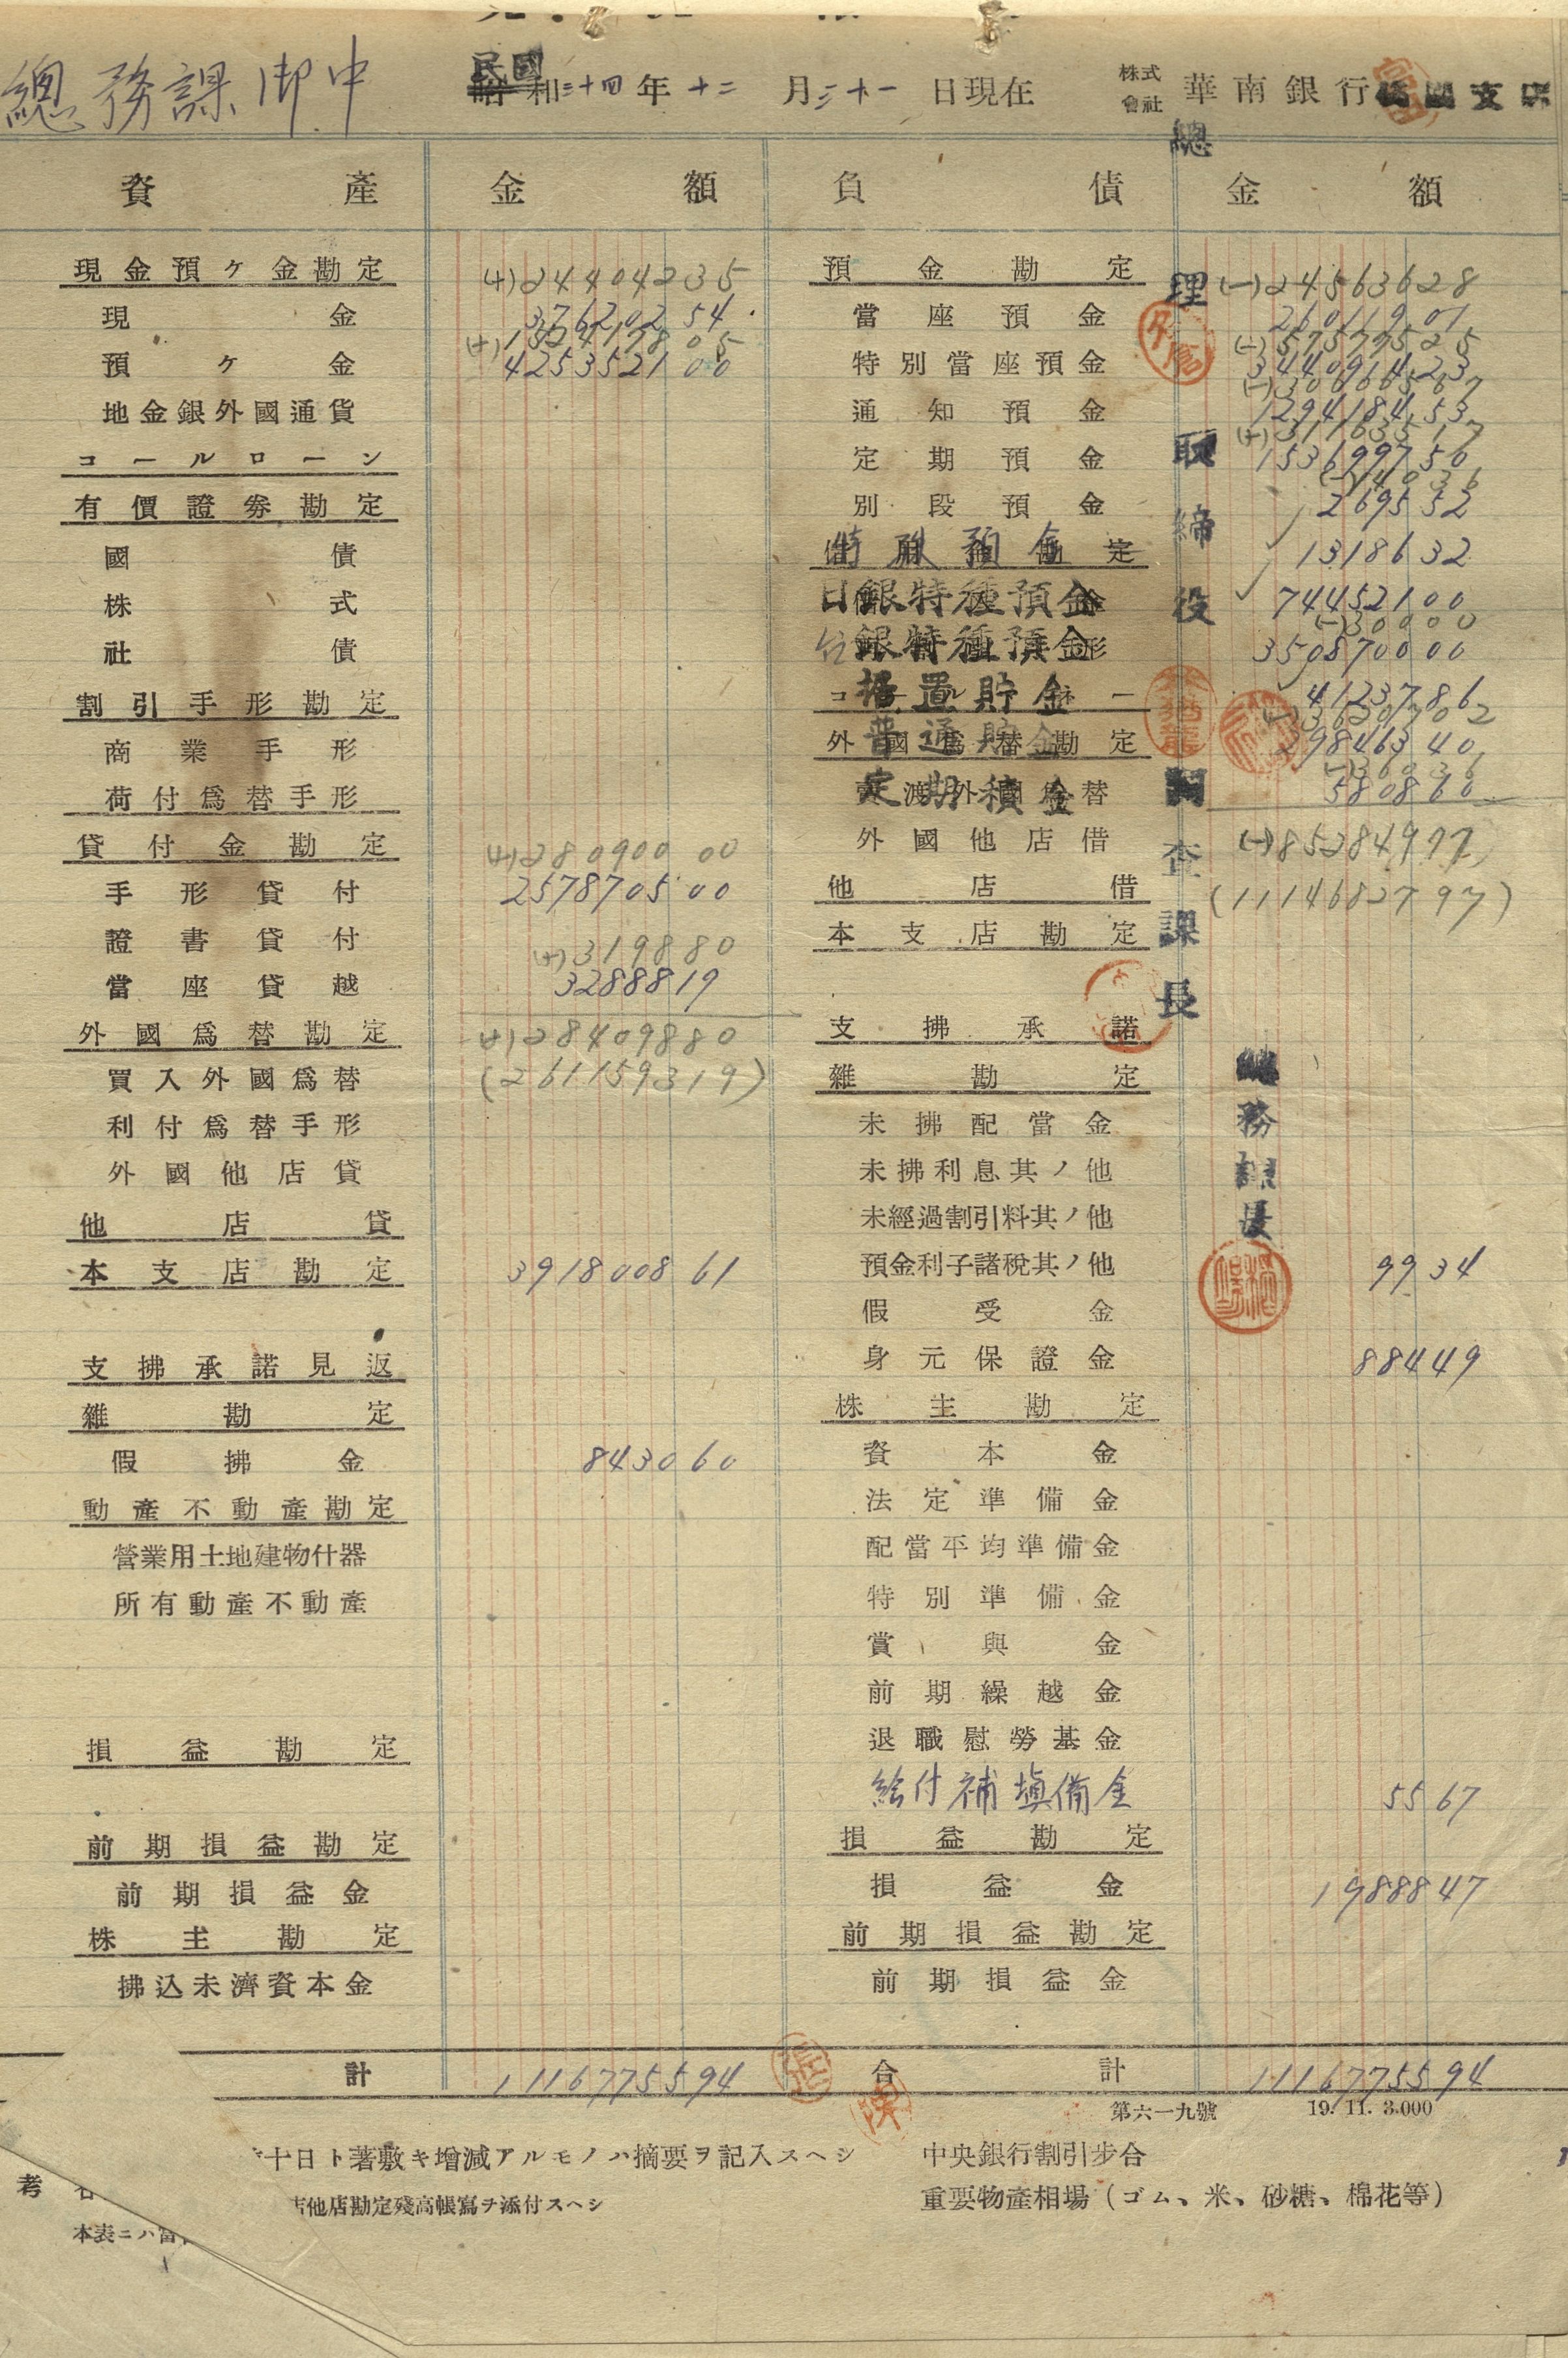 總務課御中
民國 昭和三十四年十二月三十一日現在
株式會社 華南銀行
資產 金額 負債 金額
總理
取締役
調查課長
總務課長
現金預ケ金勘定 (+)24404235
現金 376202 54
(+)1324178 05
預ケ金 4253521 00
地金銀外國通貨
コールローン
有價證券勘定
國債
株式
社債
割引手形勘定
商業手形
荷付爲替手形
貸付金勘定 (+)280900 00
手形貸付 2578705 00
證書貸付 (+)319880
當座貸越 3288819
外國爲替勘定 (+)28409880
買入外國爲替 (261159319)
利付爲替手形
外國他店貸
他店貸
本支店勘定 3918008 61
支拂承諾見返
雜勘定
假拂金 8430 60
動產不動產勘定
營業用土地建物什器
所有動產不動產
損益勘定
前期損益勘定
前期損益金
株主勘定
拂込未濟資本金
計 1116775594
預金勘定 (-)24563628
當座預金 260119 01
(-)57577525
特別當座預金 3440914 23
通知預金 1294184 53
(+)31163517
定期預金 1536997 50
(-)14036
別段預金 269552
特殊預金 1318632
日銀特種預金 744521 00
(-)30000
台銀特種預金 3508700 00
据置貯金 4123786
(-)3620702
普通貯金 298463 40
定期積金 580860
外國爲替勘定
外國他店借 (-)85284997
他店借 (1114682797)
本支店勘定
支拂承諾
雜勘定
未拂配當金
未拂利息其ノ他
未經過割引料其ノ他
預金利子諸稅其ノ他 9934
假受金
身元保證金 88449
株主勘定
資本金
法定準備金
配當平均準備金
特別準備金
賞與金
前期繰越金
退職慰勞基金
給付補塡備金 5567
損益勘定
損益金 1988847
前期損益勘定
前期損益金
合計 1116775594
第六一九號 19. 11. 3.000
十日ト著敷キ增減アルモノハ摘要ヲ記入スヘシ
他店勘定殘高帳寫チ添付スヘシ
考
本表ニハ
中央銀行割引步合
重要物產相場(ゴム、米、砂糖、棉花等)